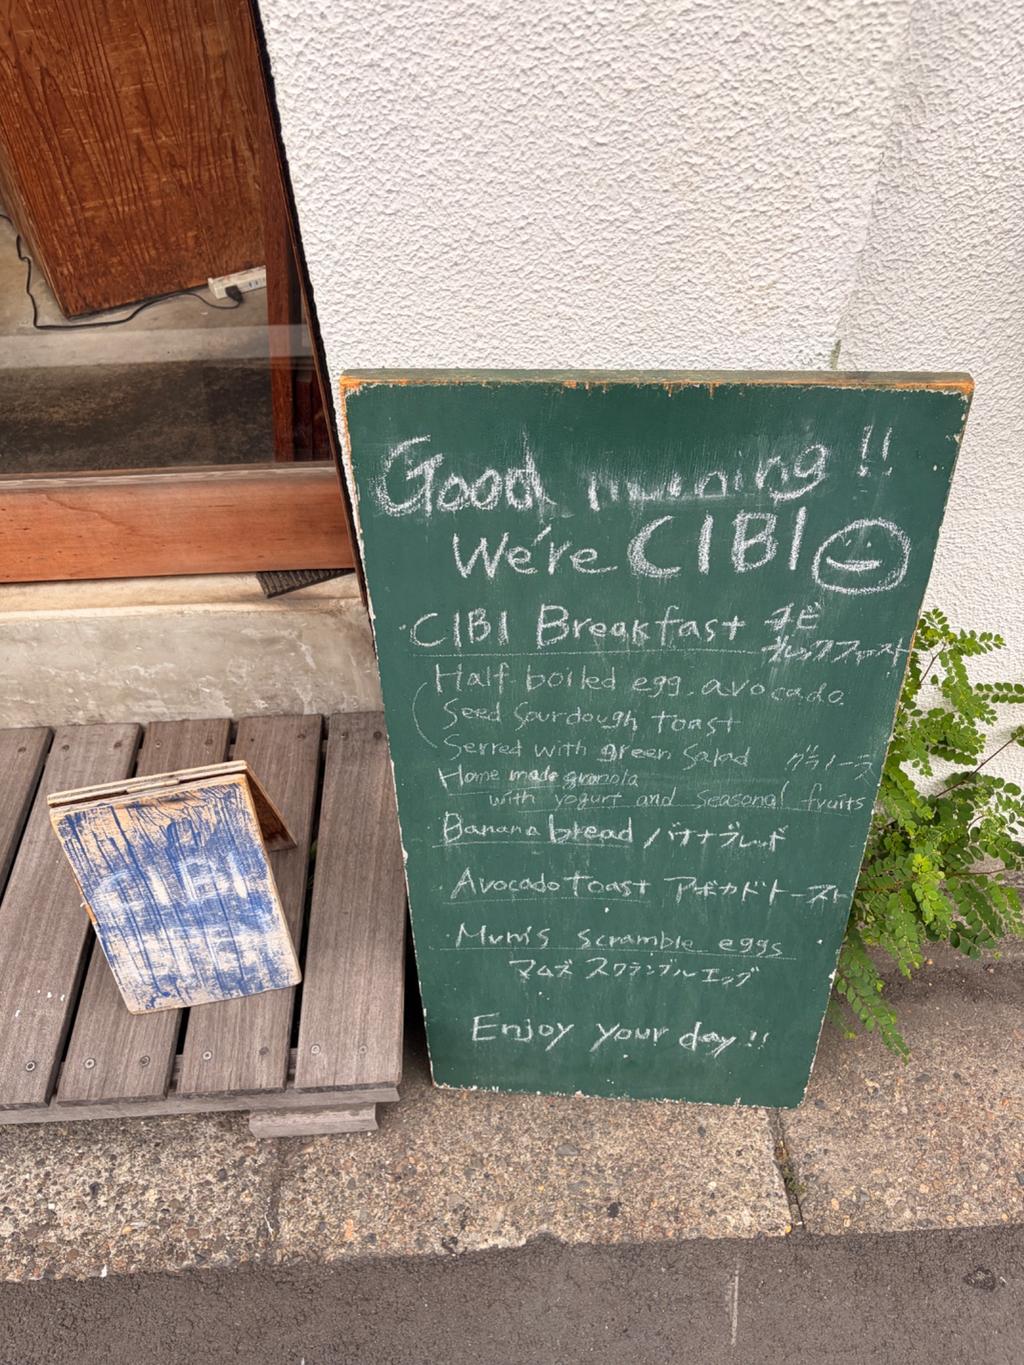 Good morning !!
We're CIBI
CIBI Breakfast チビ
ブレックファスト
Half boiled egg, avocado.
Seed Sourdough toast
Served with green Salad
グラノーラ
Home made granola
with yogurt and Seasonal fruits
Banana bread バナナブレッド
Avocado toast アボカドトースト
Mum's scramble eggs
マムズ スクランブルエッグ
Enjoy your day!!
CIBI